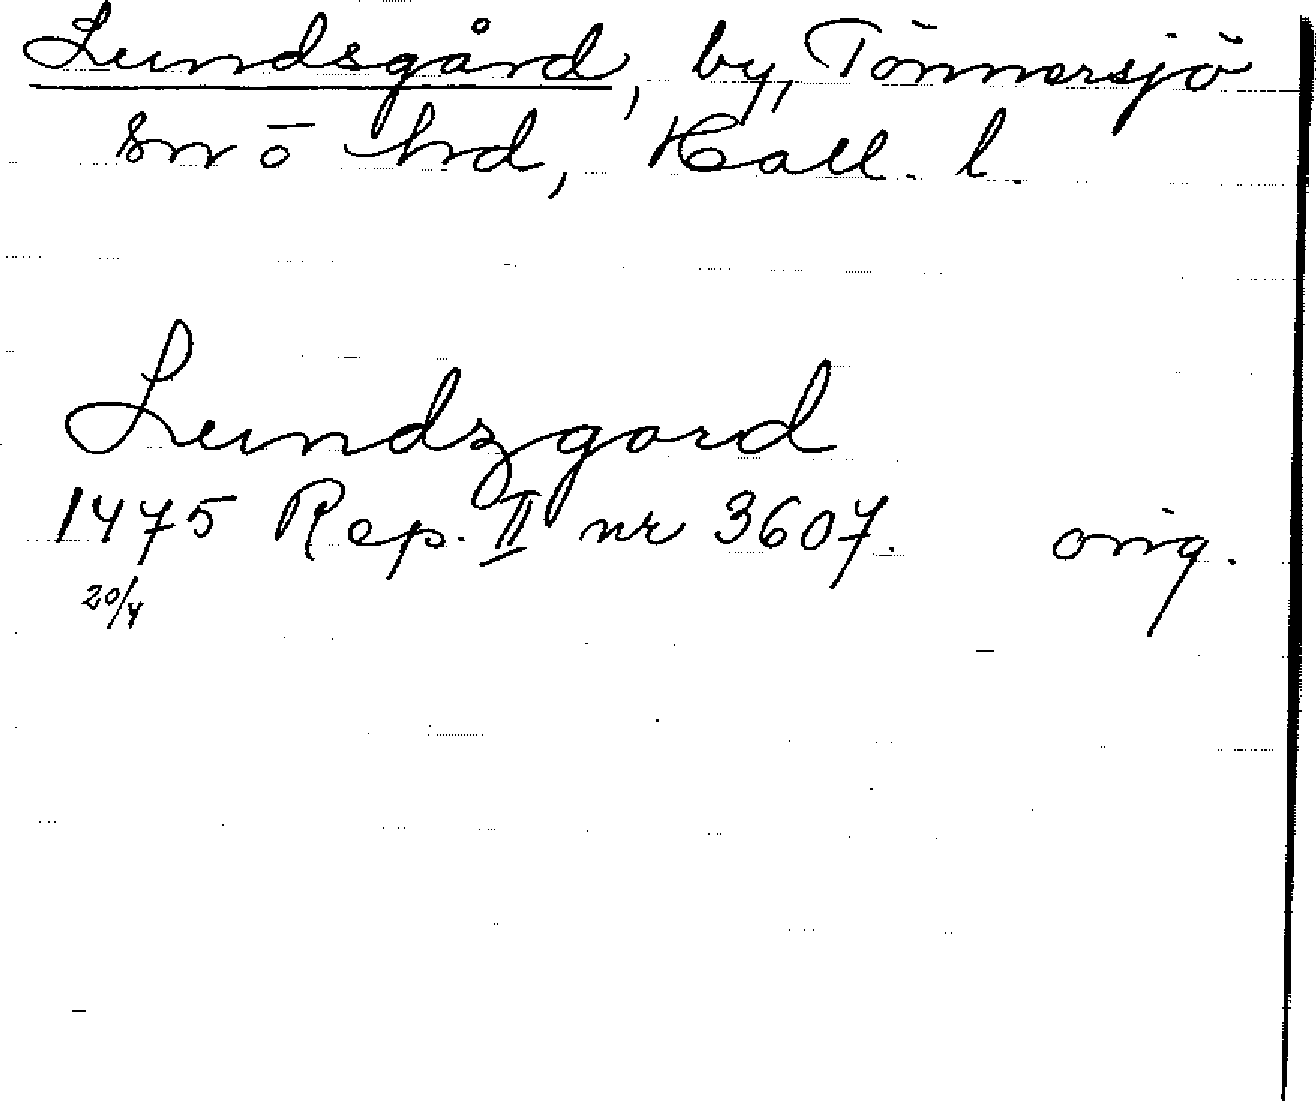 Lundsgård, by, Tönnersjö
sn o hd, Hall. l.
Lundzgord
1475 Rep. II nr 3607. orig.
20/4